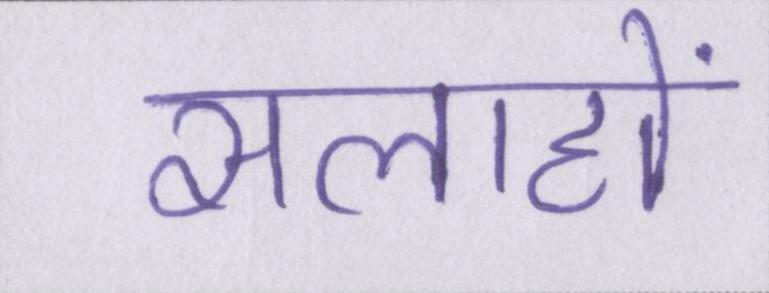 सलाहों